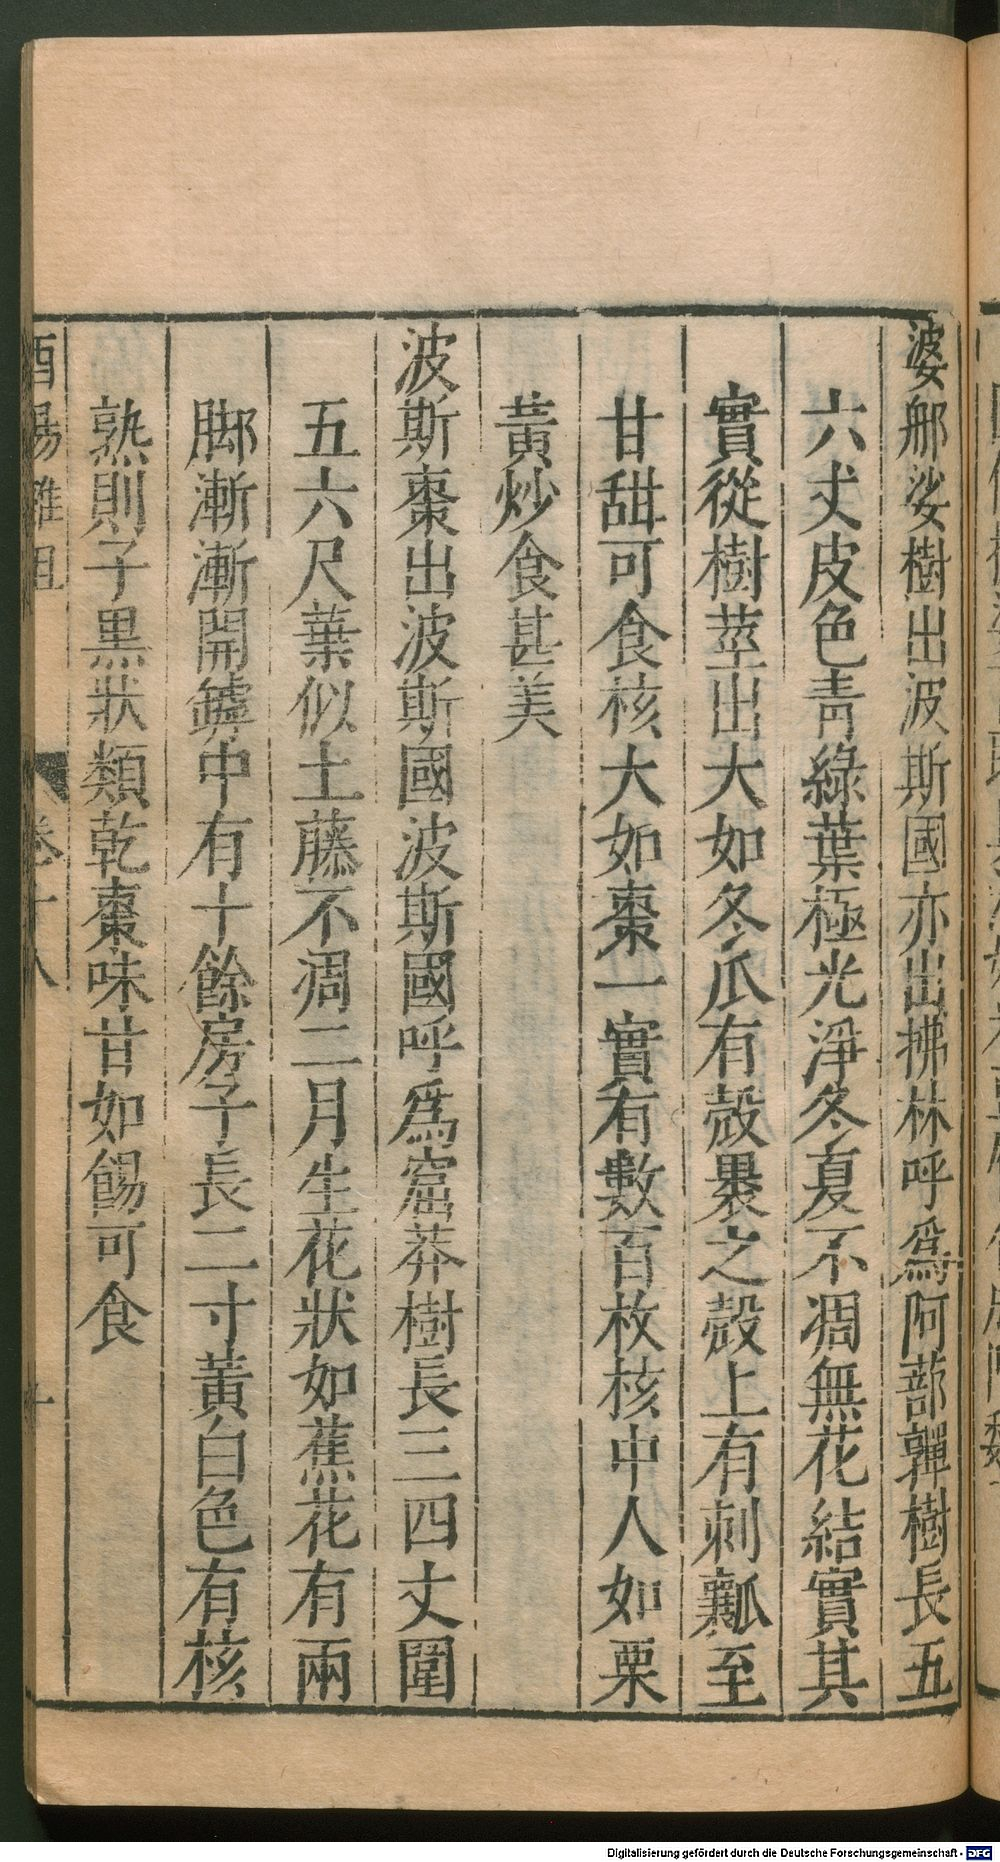 婆㢚娑樹出波斯國亦出拂林呼爲阿蔀嚲樹長五
六丈皮色青綠葉極光淨冬夏不凋無花結實其
實從樹莖出大如冬瓜有殼褁之殼上有刺瓤至
甘甜可食核大如棗一實有數百枚核中人如栗
黃炒食甚美
波斯棗出波斯國波斯國呼爲窟莽樹長三四丈圍
五六尺葉似土藤不凋二月生花狀如蕉花有兩
脚漸漸開罅中有十餘房子長二寸黃白色有核
熟則子黑狀類乾棗味甘如餳可食
酉陽雜俎 卷十八
Digitalisierung gefördert durch die Deutsche Forschungsgemeinschaft - DFG